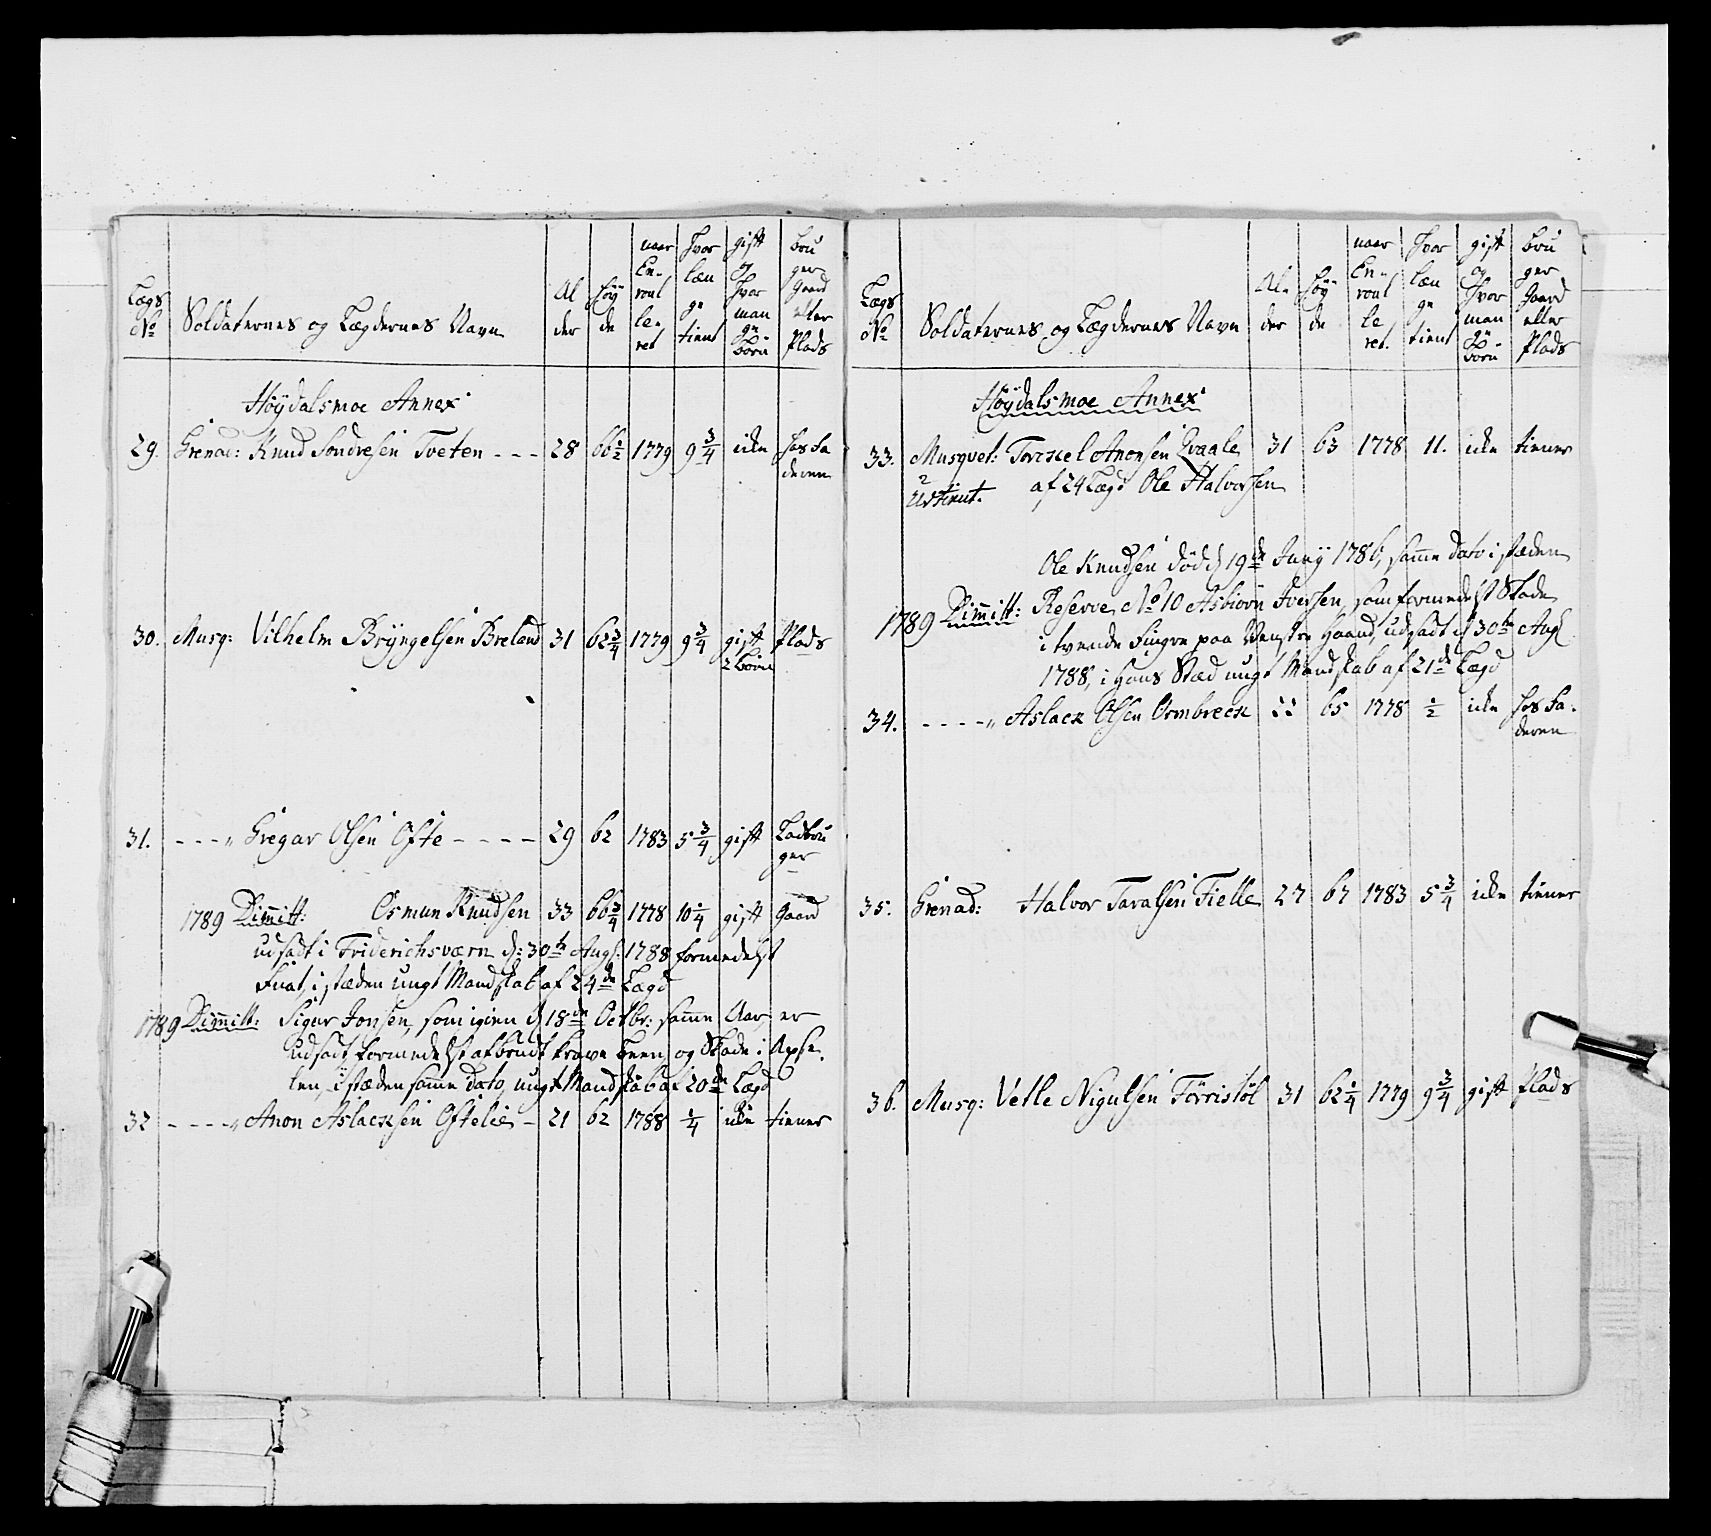 Lægs No
Soldaternes og Lægdernes Navn
Al der
Høy de
naar En- roul le- ret
hvor læn ge tient
gift og hvor man ge børn
bru ger Gaard eller Plads
Høydalsmoe Annex
29. Grenad: Knud Sondresen Tveten - - - 28 66½ 1779 9¾ ikke hos Fa
deren
30. Musq: Vilhelm Bryngelsen Breland 31 62¾ 1779 9¾ gift Plads
2 børn
31. - - - „ Gregar Olsen Ofte - - - - 29 62 1783 5¾ gift Ladbru
ger
1789 Dimitt: Osmun Knudsen 33 66¾ 1778 10¼ gift Gaard
udsadt i Friderichsværn d: 30te Aug: 1788 formedelst
i stæden ungt Mandskab af 24de Lægd
1789 Dimitt: Sigur Jonsen, som igien d 18de Octbr: samme Aar, er
udsadt formedelst afbrudt been og Skade i Axse-
len, i stæden samme dato, ungt Mandskab af 20de Lægd
32 - - - - „ Anon Aslacksen Oftelie - 21 62 1788 ¼ ikke tiener
Lægs No
Soldaternes og Lægdernes Navn
Al- der
Høy- de
naar En- roul le ret.
hvor læn ge tient
gift og hvor man ge børn
bru ger Gaard eller Plads
Høydalsmoe Annex
33. Musqvet: Torckel Anonsen Qvaale 31 63 1778 11. ikke tiener
2
Udtient. af 24 Lægd Ole Halvorsen
Ole Knudsen død d 19de Juny 1786, samme dato i stæden
1789 Dimitt: Reserve No 10 Asbiørn Iversen, som formedelst Skade
i tvende Fingre paa Venstre Haand, udsadt d 30te Aug:
1788, i hans Stæd ungt Mandskab af 21de Lægd
34. - - - - „ Aslack Olsen Ormbreck 22 65 1778 ½ ikke hos Fa-
deren
35. Grenad: Halvor Taralsen Fielle 27 67 1783 5¾ ikke tiener
36. Musq: Vetle Nigulsen Førristøl 31 62¼ 1779 9¾ gift Plads